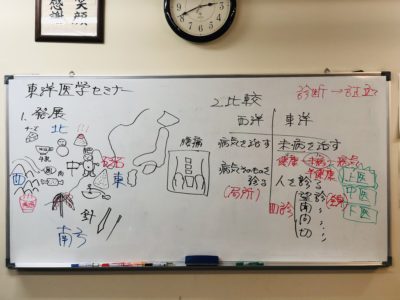 笑顔
感謝
東洋医学セミナー
1. 発展
北
チーズ
牛乳
中
西
東
南方
針
腰痛
2. 比較
西洋
東洋
病気を治す
未病を治す
健康 未病 病気
半健康
病気そのものを
診る
(局所)
人を診る
四診
望診
聞
問
切
診断→証
上医
中医
下医